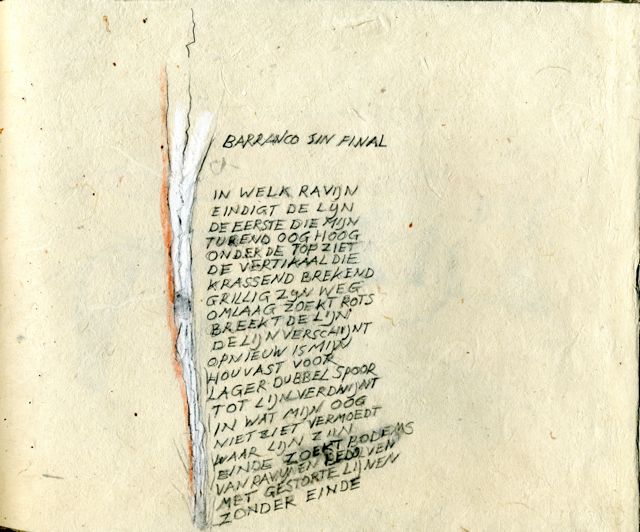 BARRANCO SIN FINAL
IN WELK RAVIJN
EINDIGT DE LIJN
DE EERSTE DIE MIJN
TUREND OOG HOOG
ONDER DE TOP ZIET
DE VERTIKAAL DIE
KRASSEND BREKEND
GRILLIG ZIJN WEG
OMLAAG ZOEKT ROTS
BREEKT DE LIJN
DE LIJN VERSCHIJNT
OPNIEUW IS MIJN
HOUVAST VOOR
LAGER DUBBELSPOOR
TOT LIJN VERDWIJNT
IN WAT MIJN OOG
NIET ZIET VERMOEDT
WAAR LIJN ZIJN
EINDE ZOEKT BODEMS
VAN RAVIJNEN BEDOLVEN
MET GESTORTE LIJNEN
ZONDER EINDE